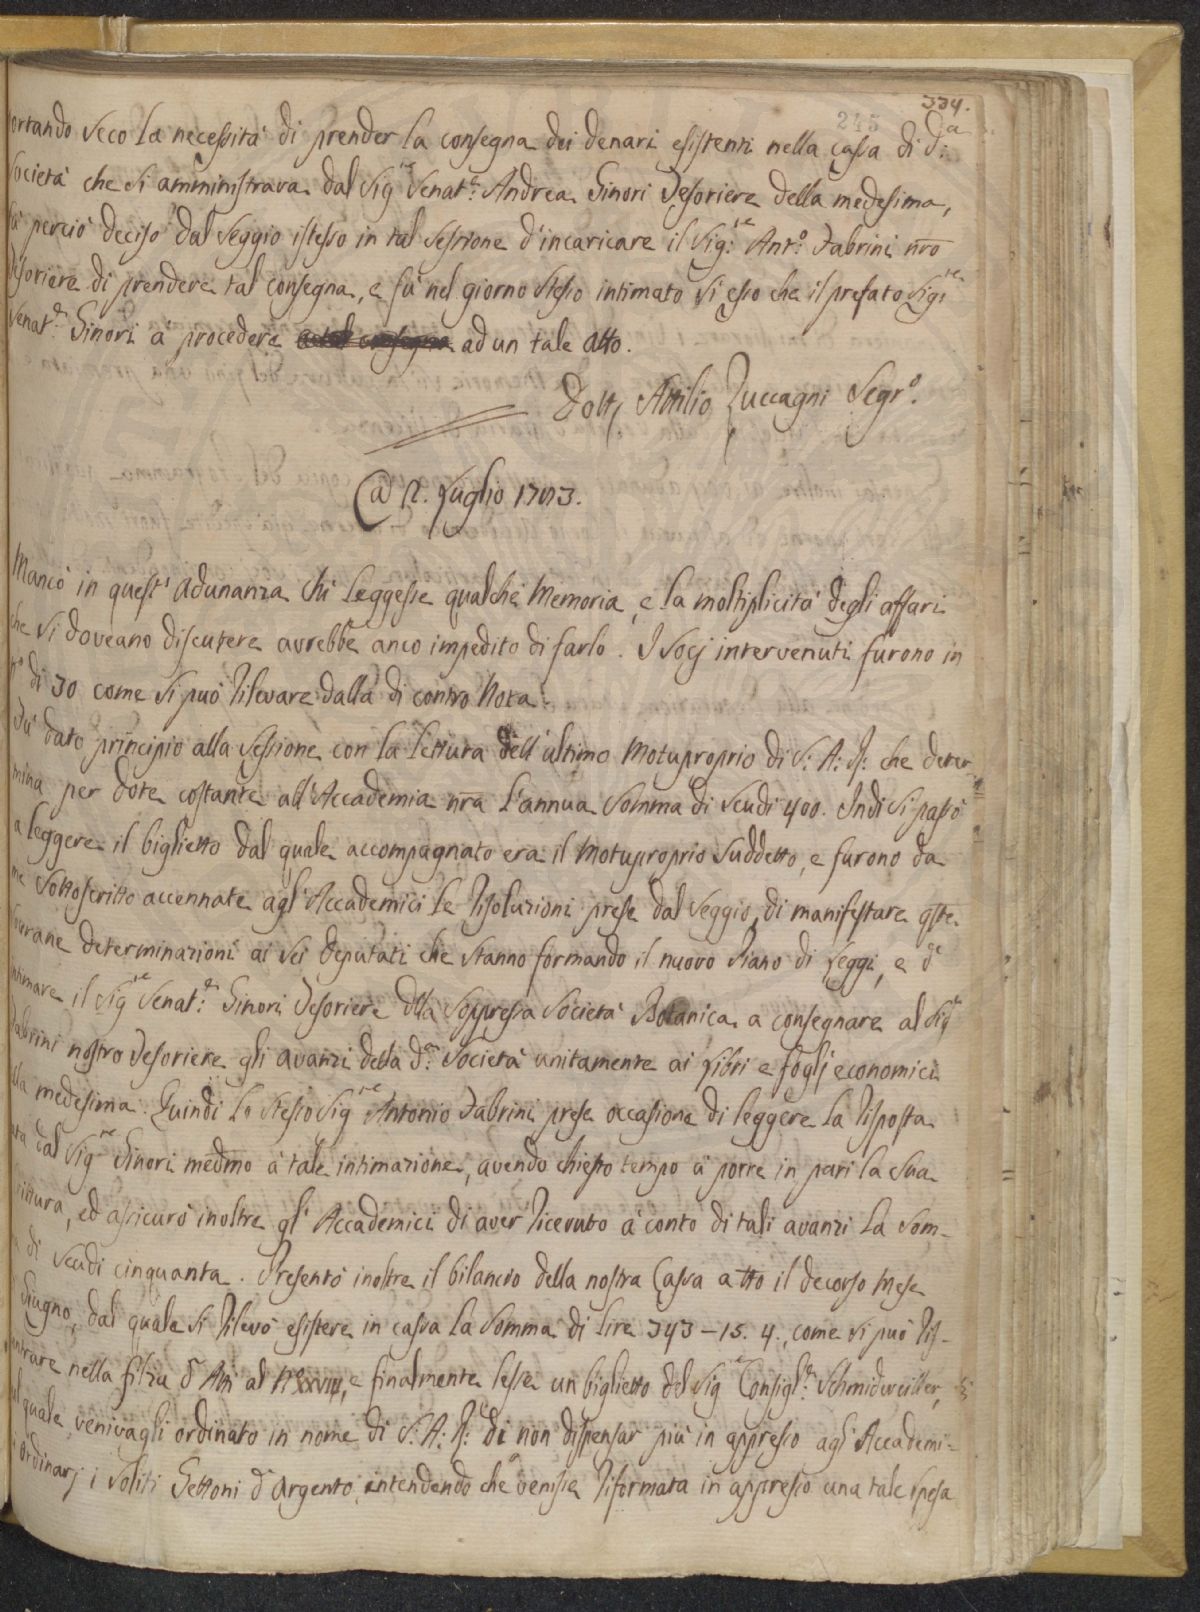 334.
245
portando seco la necessità di prender la consegna dei denari esistenti nella cassa di d.a
Società che si amministrava dal Sig.re Senat.e Andrea Ginori Tesoriere della medesima,
fù perciò deciso dal Seggio istesso in tal Sessione d'incaricare il Sig.re Ant.o Fabrini nro
Tesoriere di prendere tal consegna, e fù nel giorno stesso intimato il prefato Sig.re
Senat.e Ginori à procedere ad un tale atto.
Dott. Attilio Zuccagni Segr.o
Luglio 1783.
Mancò in quest'adunanza chi leggesse qualche Memoria, e la moltiplicità degli affari
che si doveano discutere avrebbe anco impedito di farlo. I Socj intervenuti furono in
n.o di 30 come si può rilevare dalla di contro Nota.
Fù dato principio alla Sessione con la lettura dell'ultimo Motuproprio di S: A: R: che deter-
mina per dote costante all'Accademia nra l'annua Somma di Scudi 400. Indi si passò
a leggere il biglietto dal quale accompagnato era il Motuproprio Suddetto, e furono da
me Sottoscritto accennate agl'Accademici le Risoluzioni prese dal Seggio, di manifestare qste
Sovrane determinazioni ai sei Deputati che stanno formando il nuovo Piano di Leggi, e d'
intimare il Sig.re Senat.e Ginori Tesoriere dlla Soppressa Società Botanica a consegnare al Sig.re
Fabrini nostro Tesoriere gli avanzi della d.a Società unitamente ai Libri e foglj economici
lla medesima. Quindi lo stesso Sig.re Antonio Fabrini prese occasione di leggere la Risposta
ata dal Sig.re Ginori medmo à tale intimazione, avendo chiesto tempo a porre in pari la sua
rittura, ed assicurò inoltre gl'Accademici di aver ricevuto à conto di tali avanzi la Som-
a di Scudi cinquanta. Presentò inoltre il bilancio della nostra Cassa a tto il decorso Mese
Giugno, dal quale si rilevò esistere in cassa la Somma di lire 343 - 15. 4., come si può ris-
ontrare nella filza d'Atti al N.o XXVIII, e finalmente lesse un biglietto del Sig.e Consigl.e Schmidweiller,
l quale venivagli ordinato in nome di S: A: R: di non dispensar più in appresso agl'Accademi-
i ordinarj i soliti Gettoni d'argento, intendendo che venisse riformata in appresso una tale spesa